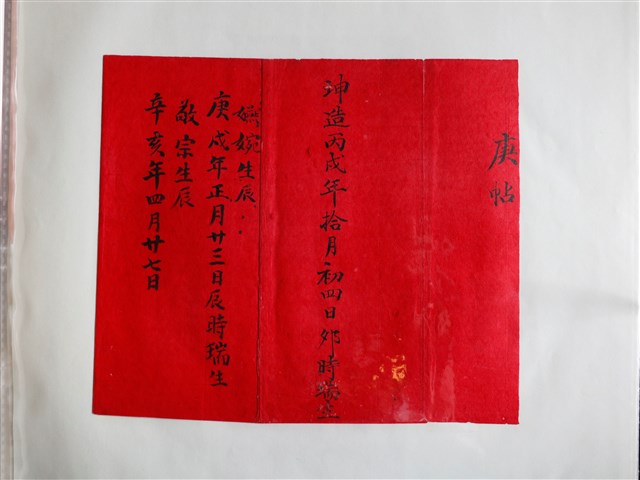 庚帖
坤造丙戌年拾月初四日卯時瑞生
婉生辰:
庚戌年正月廿三日辰時瑞生
敬宗生辰
辛亥年四月廿七日